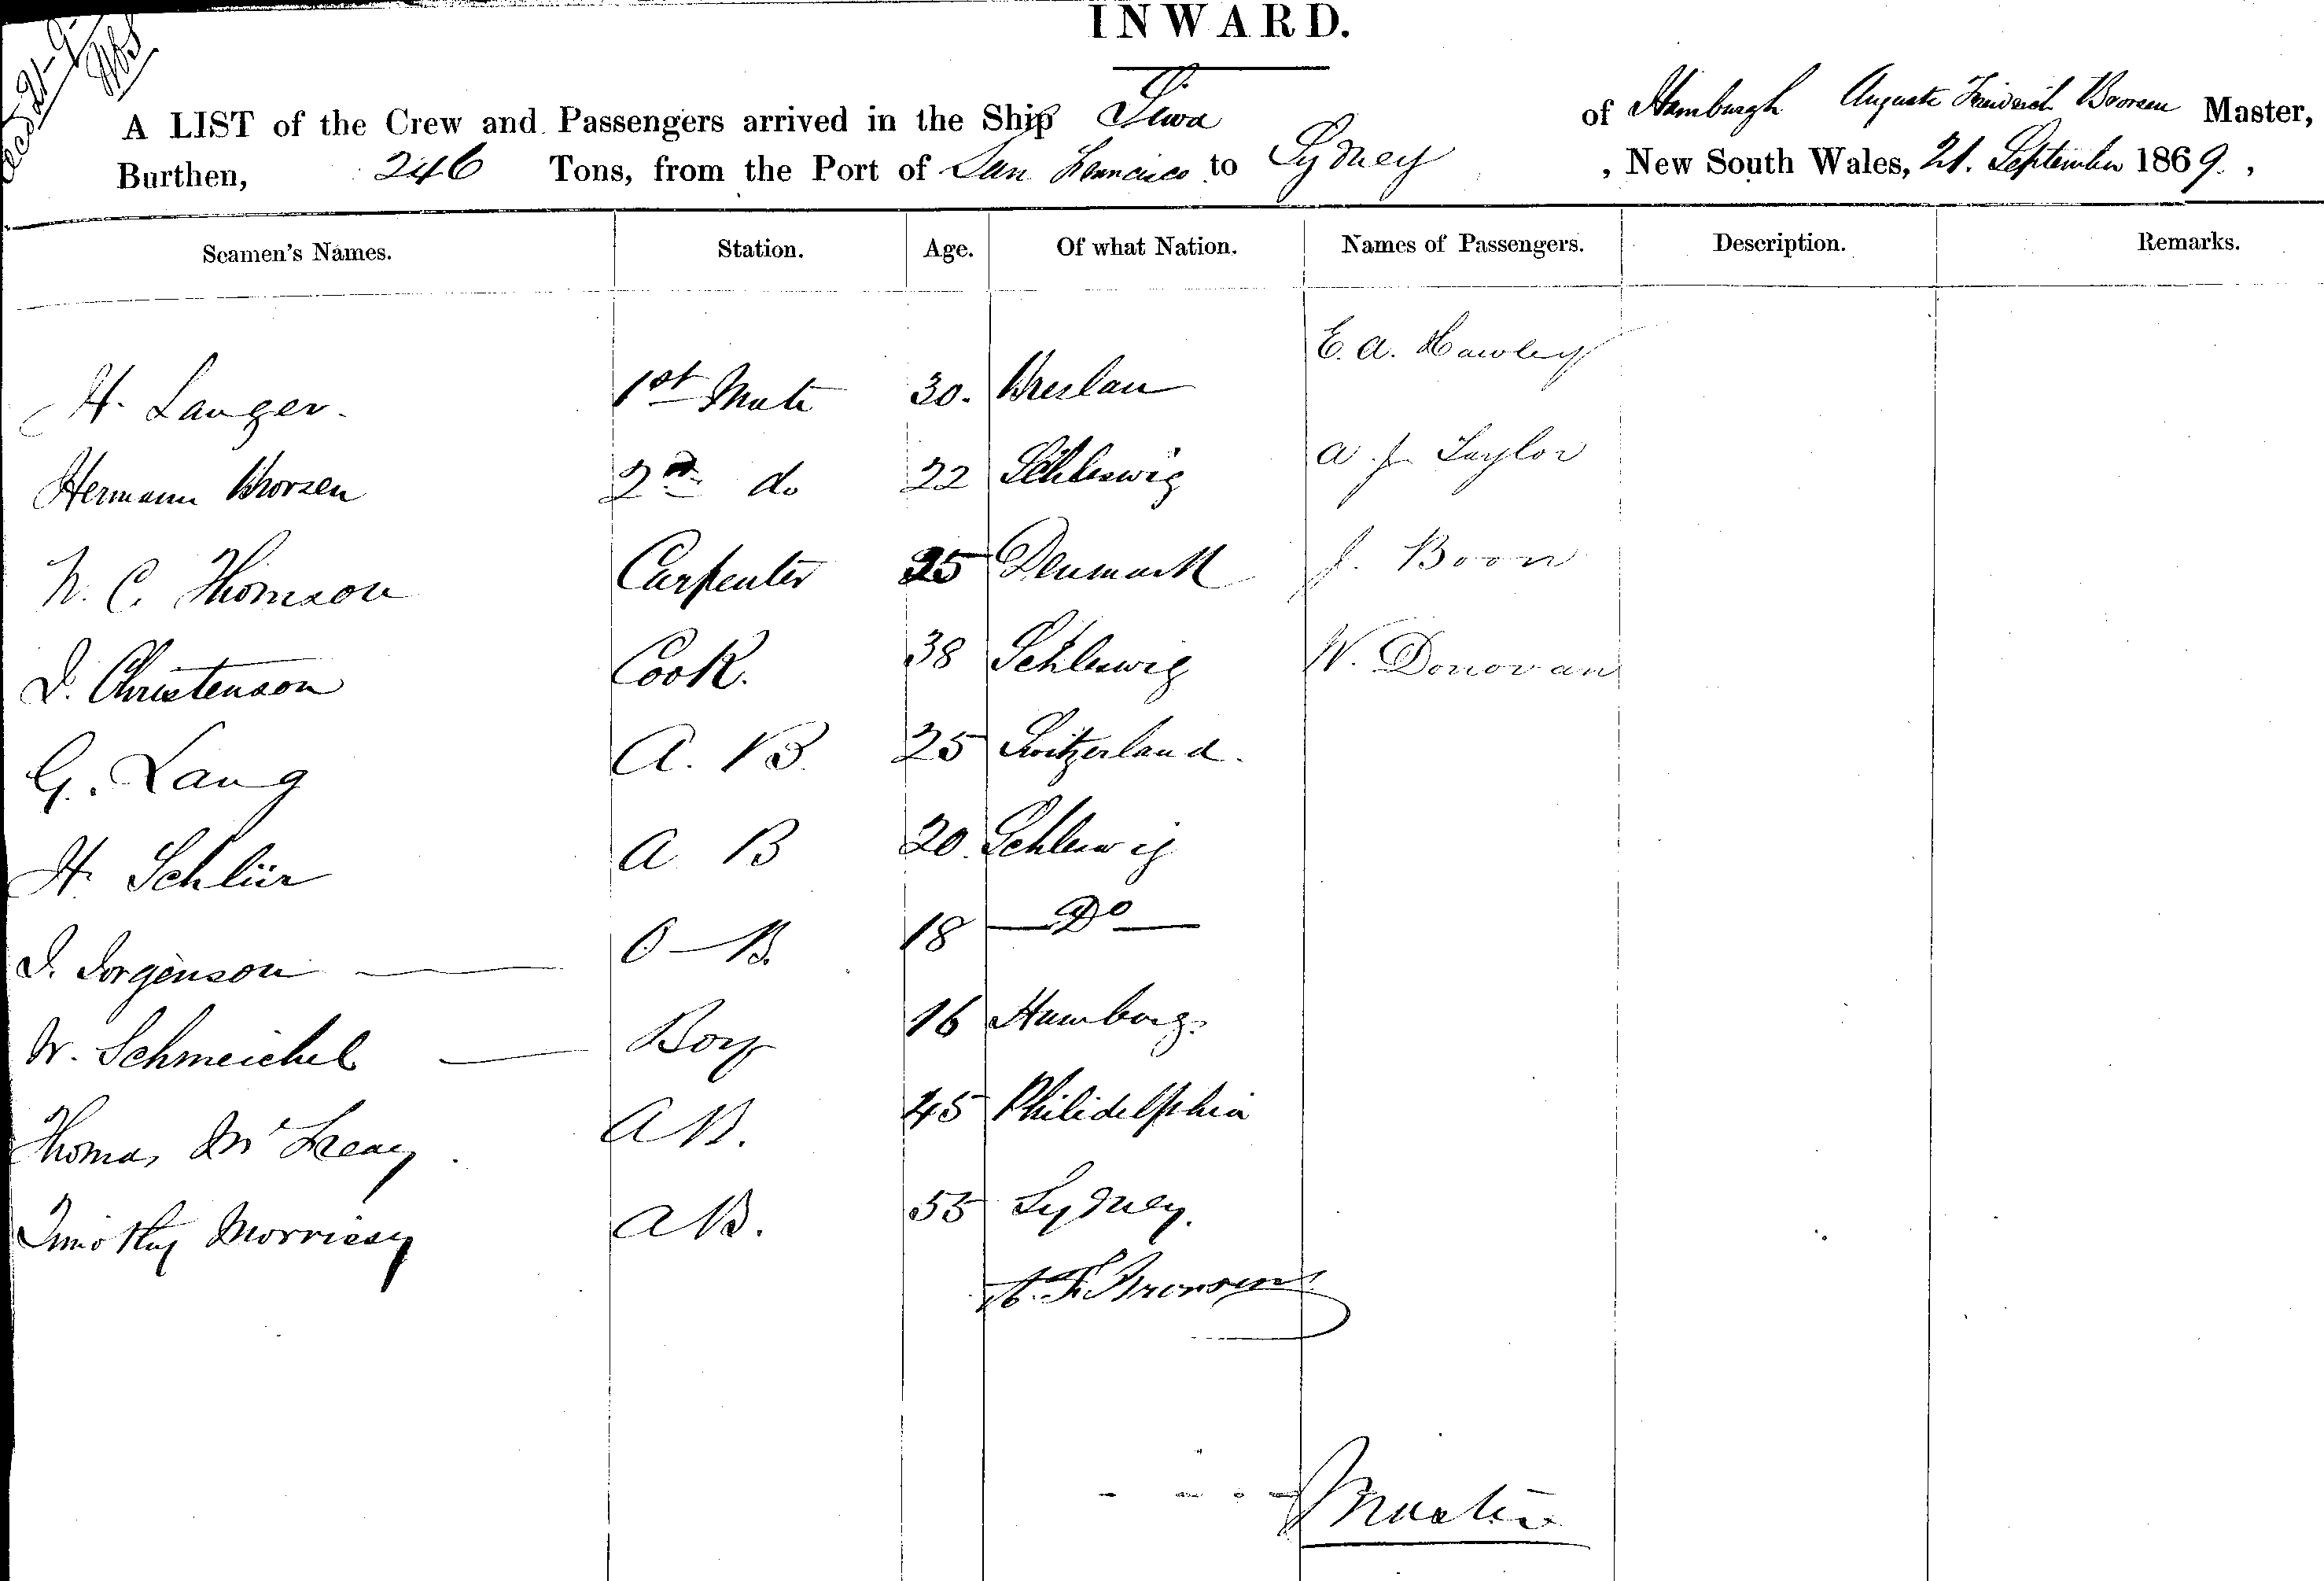 INWARD.
A LIST of the Crew and Passengers arrived in the Ship Siwa of Hamburgh Auguste Master,
Burthen, 246 Tons, from the Port of San Francisco to Sydney, New South Wales, 21. September 1869.,
Seamen's Names. Station. Age. Of what Nation. Names of Passengers. Description. Remarks.
E. A. Hawley
H. Langer. 1st Mate 30. Breslau
A. J Taylor
Hermann 2nd do 22 Schleswig
J. Boon
N. C. Thomson Carpenter 25 Denmark
W. Donovan
Christenson Cook. 38 Schleswig
G. Lang A. B. 25 Switzerland.
H. Schlür A B 20. Schleswig
J. Jorgenson O B. 18 Do
W. Schmeichel Boy 16 Hamburg.
Thomas Mc AB. 45 Philidelphia
Timothy Morrissy AB. 55 Sydney.
A. F. Brorsen
Master